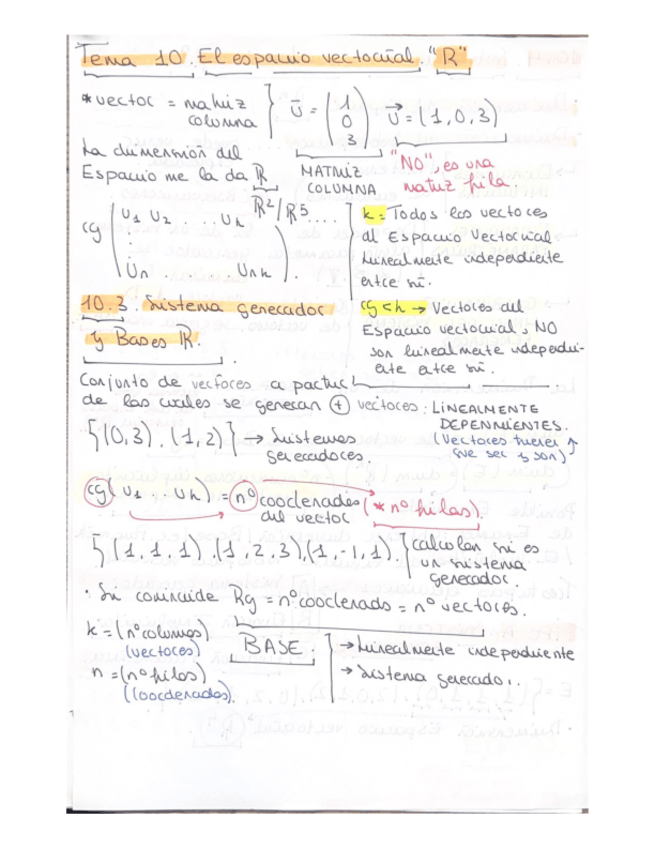 Tema 10. El espacio vectorial. "R"
*vector = matriz columna } ū = (1 0 3) u⃗ = (1, 0, 3)
La dimensión del
Espacio me la da R
R²/R⁵....
MATRIZ COLUMNA
"NO", es una matriz fila.
rg (U1 U2 ... Uk
Un ... Unk).
k = Todos los vectores
del Espacio Vectorial
linealmente independiente
entre sí.
rg < k → Vectores del
Espacio vectorial, NO
son linealmente independi-
ente entre sí.
10.3. Sistema generador
y Bases R.
Conjunto de vectores a partir
de los cuales se generan + vectores:
LINEALMENTE
DEPENDIENTES.
(Vectores tienen
que ser y son)
{(0,3), (1,2)} → Sistemas
generadores.
rg (U1 ... Uk) = nº coordenadas
del vector
(* nº filas).
{(1,1,1), (1,2,3), (1,-1,1).
Calcular si es
un sistema
generador.
· Si coincide Rg = nº coordenado = nº vectores.
k = (nº columnas)
(vectores)
n = (nº filas)
(coordenados).
BASE.
→ Linealmente independiente
→ Sistema generador.